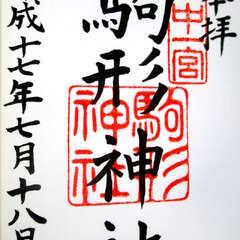 奉拝
中宮
駒形神社
駒形
神社
平成十七年七月十八日